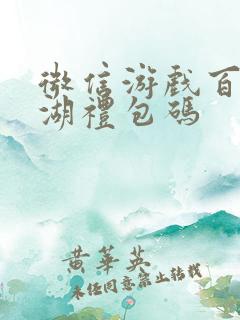 微信游戏百
湖禮包碼
黄華英
未任同意禁止转载